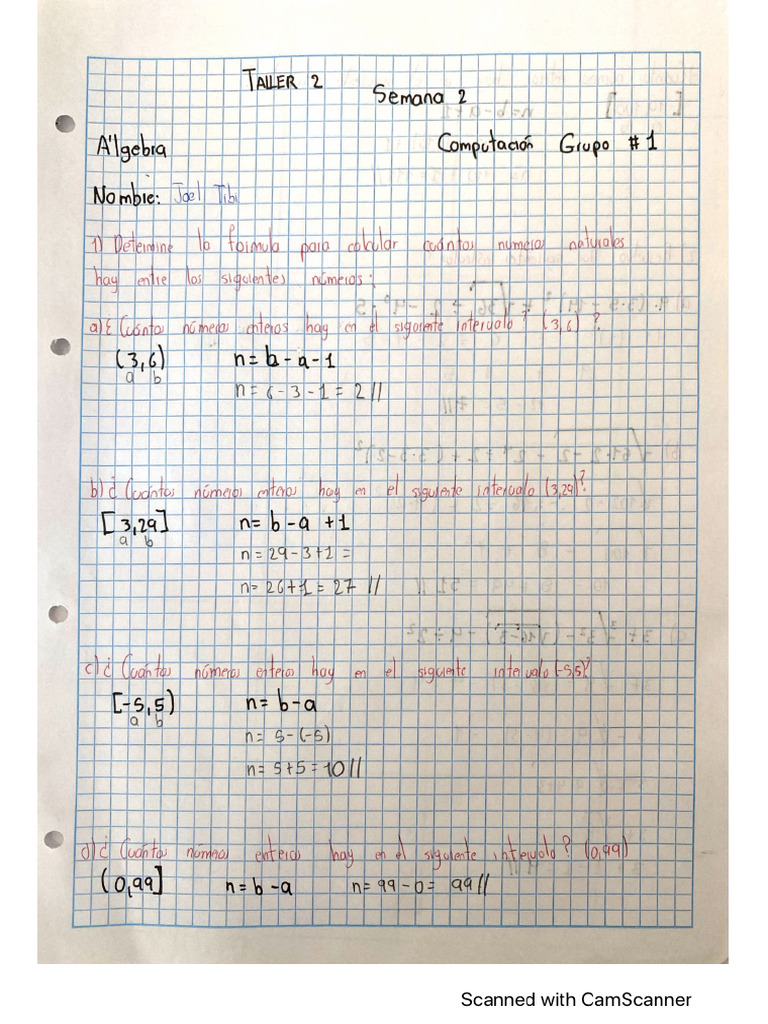 TALLER 2
Semana 2
A'lgebra
Computación Grupo # 1
Nombre: Joel Tibi
1) Determine la formula para calcular cuántos numeros naturales
hay entre los siguientes números:
a) ¿ Cuántos números enteros hay en el siguiente intervalo ? (3,6) ?
(3,6) n= b - a - 1
a b n= 6 - 3 - 1 = 2 //
b) ¿ Cuántos números enteros hay en el siguiente intervalo (3,29)?
[3,29] n= b - a + 1
a b n = 29 - 3 + 1 =
n= 26+1 = 27 //
c) ¿ Cuántos números enteros hay en el siguiente intervalo (-5,5)?
[-5,5) n= b-a
a b n= 5-(-5)
n= 5+5 = 10 //
d) ¿ Cuántos numeros enteros hay en el siguiente intervalo ? (0,99)
(0,99] n= b -a n= 99 - 0 = 99 //
Scanned with CamScanner